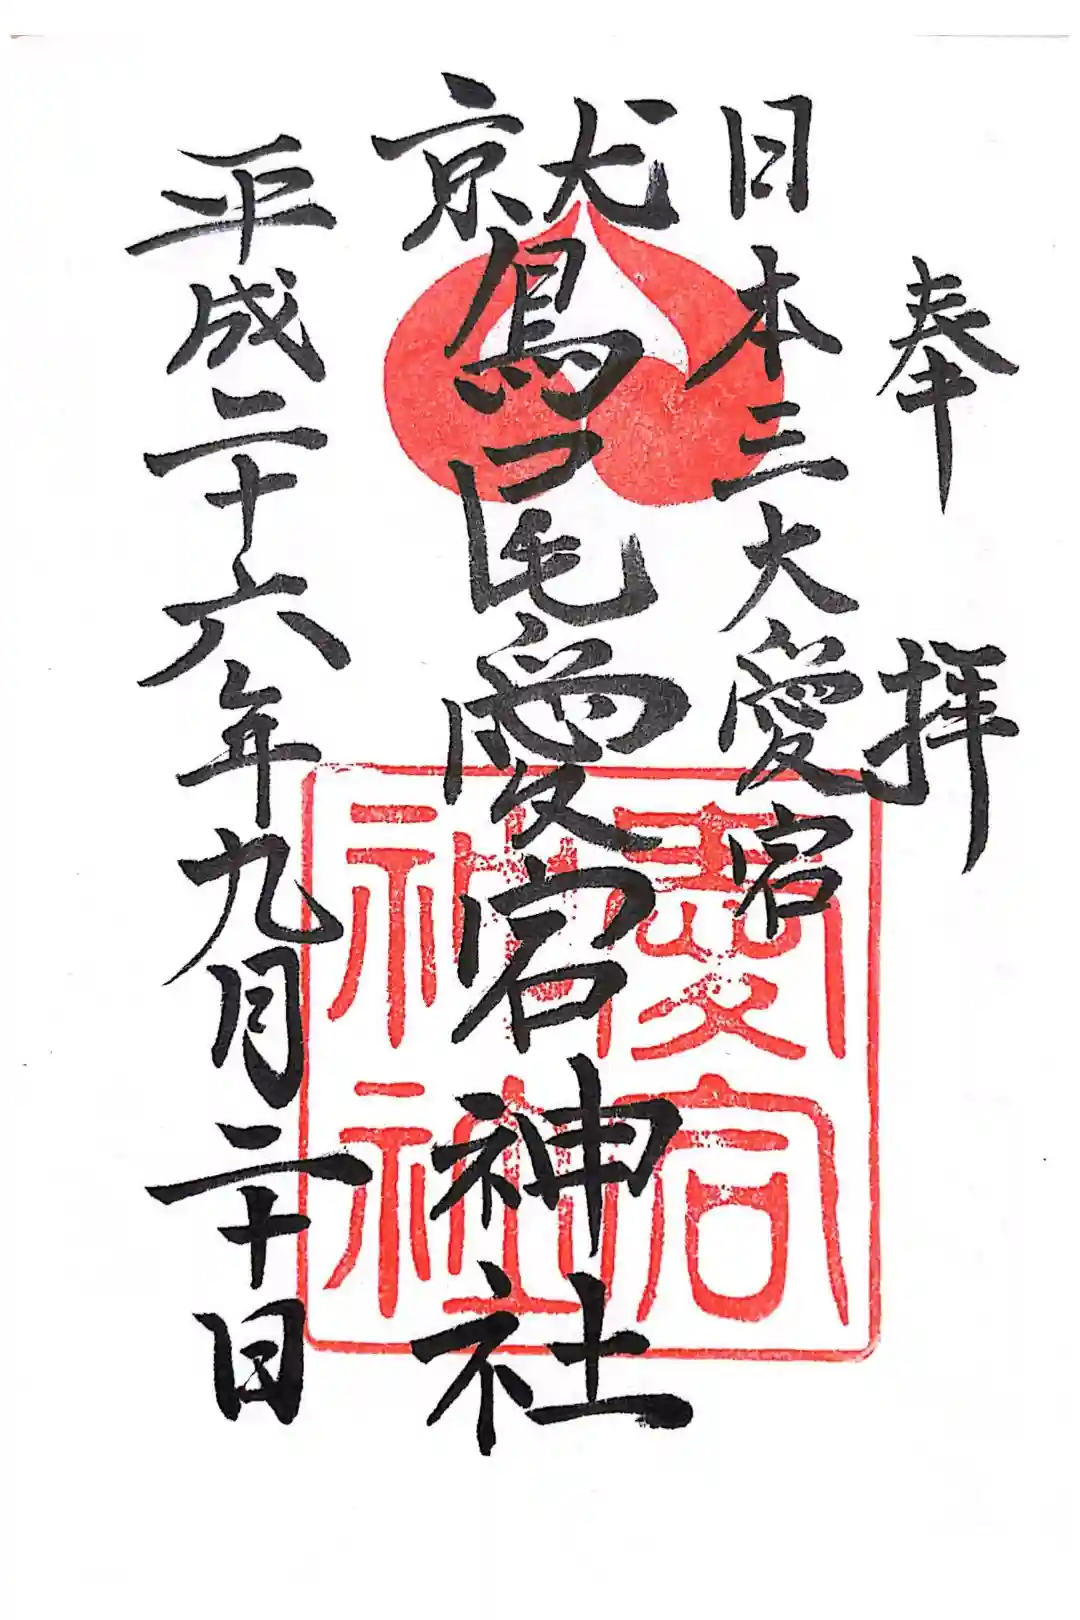 奉拝
日本三大愛宕
鷲尾愛宕神社
平成二十六年九月二十日
愛宕神社